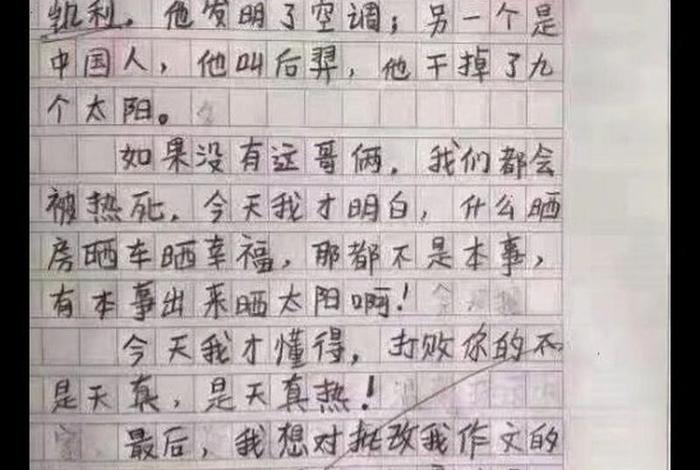 凯利，他发明了空调；另一个是
中国人，他叫后羿，他干掉了九
个太阳。
如果没有这哥俩，我们都会
被热死，今天我才明白，什么晒
房晒车晒幸福，那都不是本事，
有本事出来晒太阳啊！
今天我才懂得，打败你的不
是天真，是天真热！
最后，我想对批改我作文的